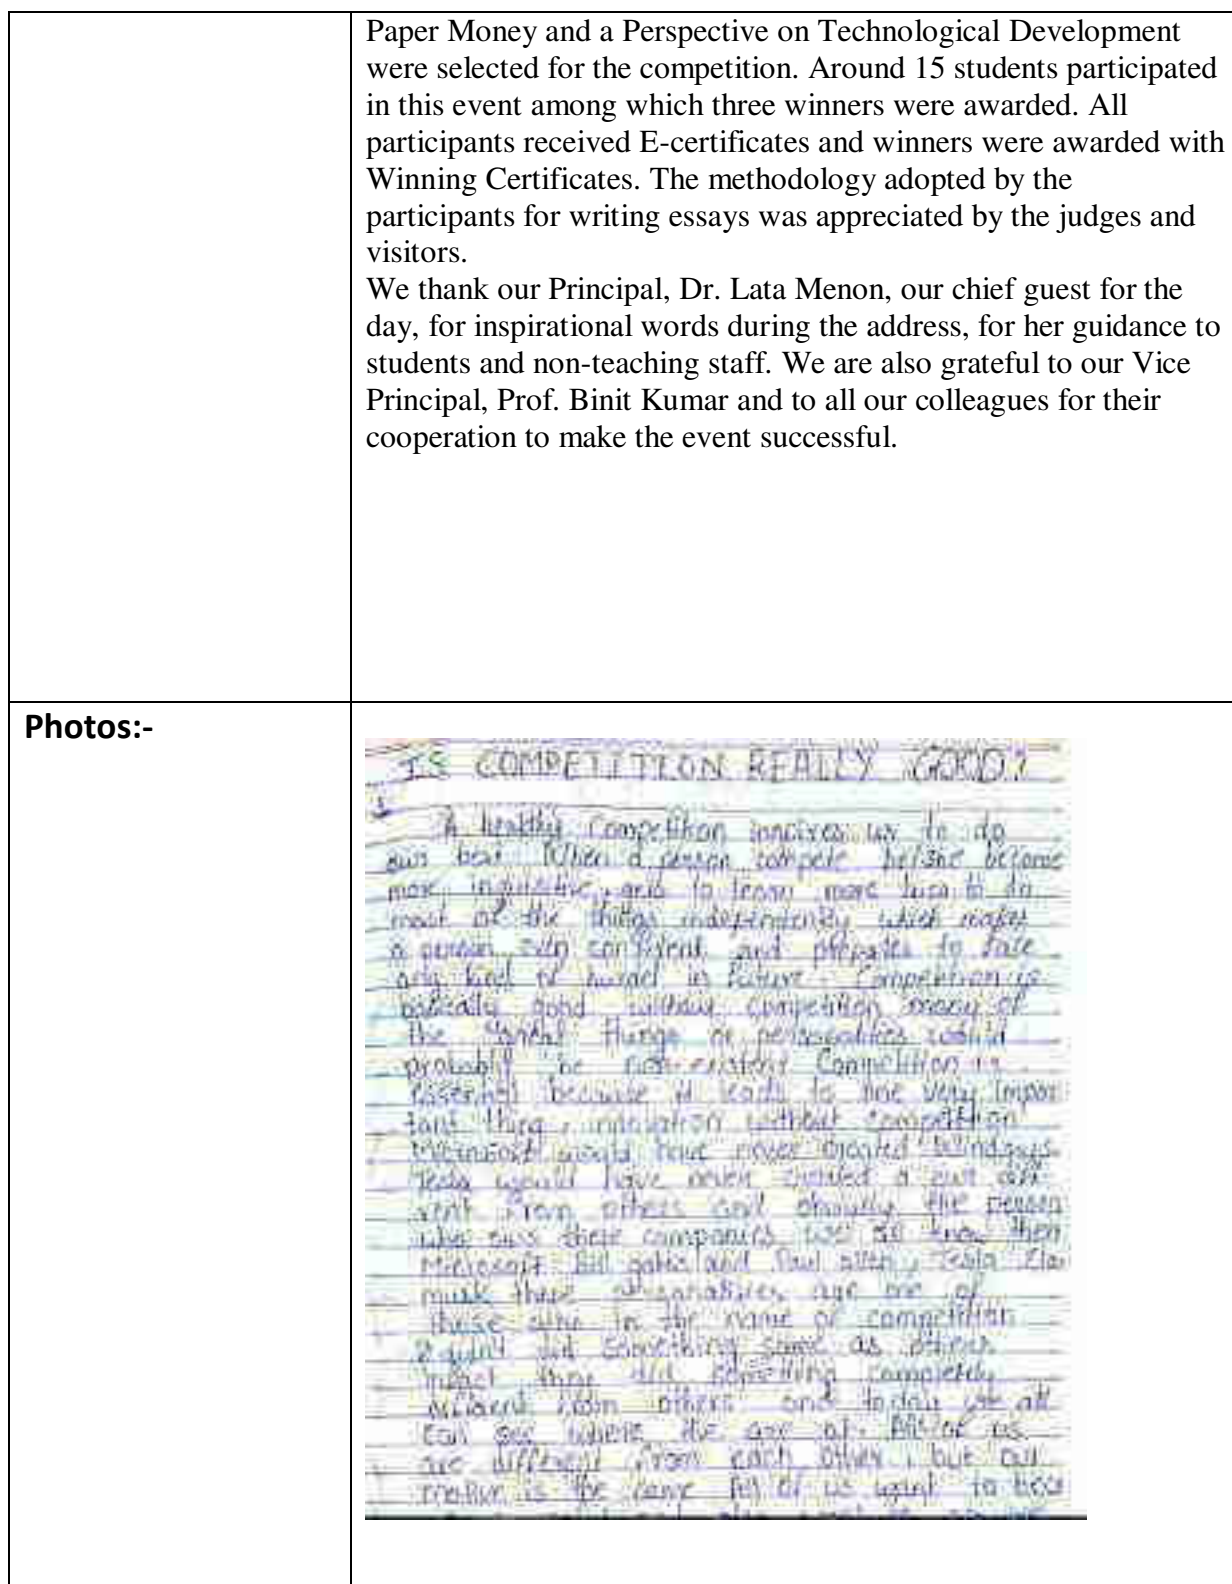 Paper Money and a Perspective on Technological Development
were selected for the competition. Around 15 students participated
in this event among which three winners were awarded. All
participants received E-certificates and winners were awarded with
Winning Certificates. The methodology adopted by the
participants for writing essays was appreciated by the judges and
visitors.
We thank our Principal, Dr. Lata Menon, our chief guest for the
day, for inspirational words during the address, for her guidance to
students and non-teaching staff. We are also grateful to our Vice
Principal, Prof. Binit Kumar and to all our colleagues for their
cooperation to make the event successful.
Photos:-
IS COMPETITION REALLY GOOD?
A healthy Competition us to do
our best When a person compete become
more to more to do
most of the things independently which makes
a person and to face
any kind of in future. Competition is
basically good without competition many of
the things or personalities would
probably be non-existent Competition is
essential because it leads to one very impor
tant thing, innovation without competition
Microsoft would have never created Windows
Tesla would have never created a
from others and the person
these companies we all know them
Microsoft Bill and Paul Tesla
musk these personalities are one of
these in the name of competition
did something same as others
they did something completely
from others and today we all
can see where are at. All of us
are different from each other, but our
motive is the same All of us want to